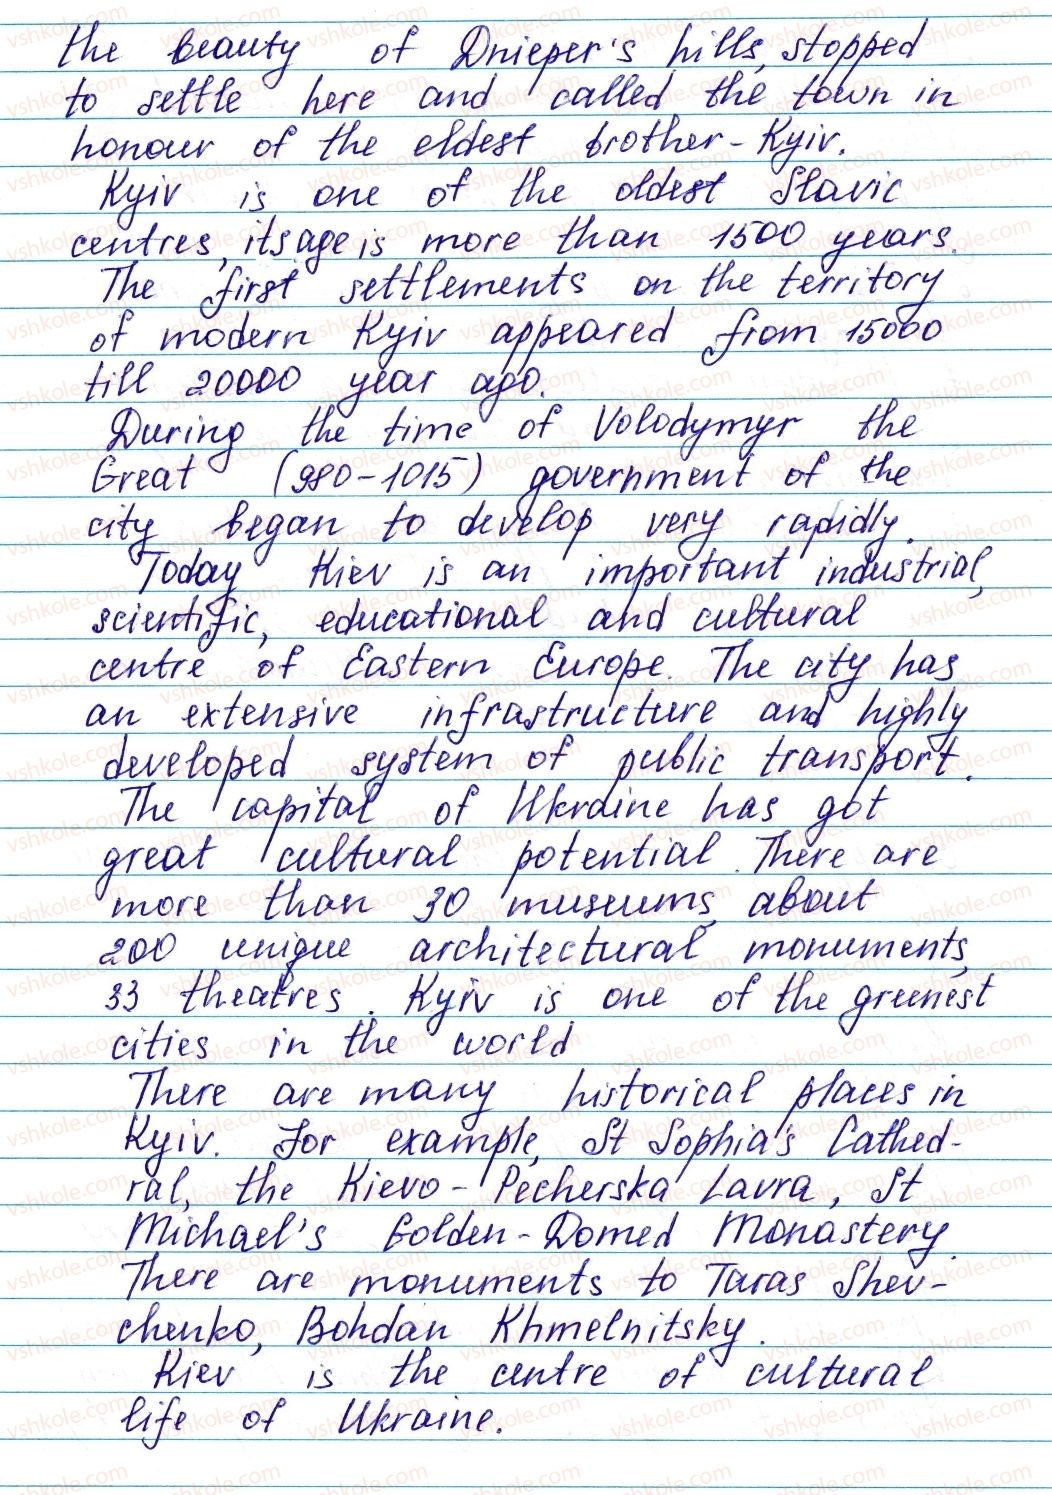 the beauty of Dnieper's hills, stopped
to settle here and called the town in
honour of the eldest brother - Kyiv.
Kyiv is one of the oldest Slavic
centres, its age is more than 1500 years.
The first settlements on the territory
of modern Kyiv appeared from 15000
till 20000 year ago.
During the time of Volodymyr the
Great (980-1015) government of the
city began to develop very rapidly.
Today Kiev is an important industrial,
scientific, educational and cultural
centre of Eastern Europe. The city has
an extensive infrastructure and highly
developed system of public transport.
The capital of Ukraine has got
great cultural potential. There are
more than 30 museums, about
200 unique architectural monuments,
33 theatres. Kyiv is one of the greenest
cities in the world
There are many historical places in
Kyiv. For example, St Sophia's Cathed-
ral, the Kievo-Pecherska Lavra, St
Michael's Golden-Domed Monastery.
There are monuments to Taras Shev-
chenko, Bohdan Khmelnitsky.
Kiev is the centre of cultural
life of Ukraine.